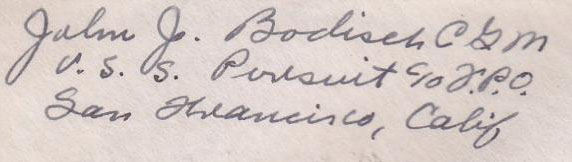 John J. Bodisch C G M
U. S. S. Pursuit c/o F.P.O.
San Francisco, Calif